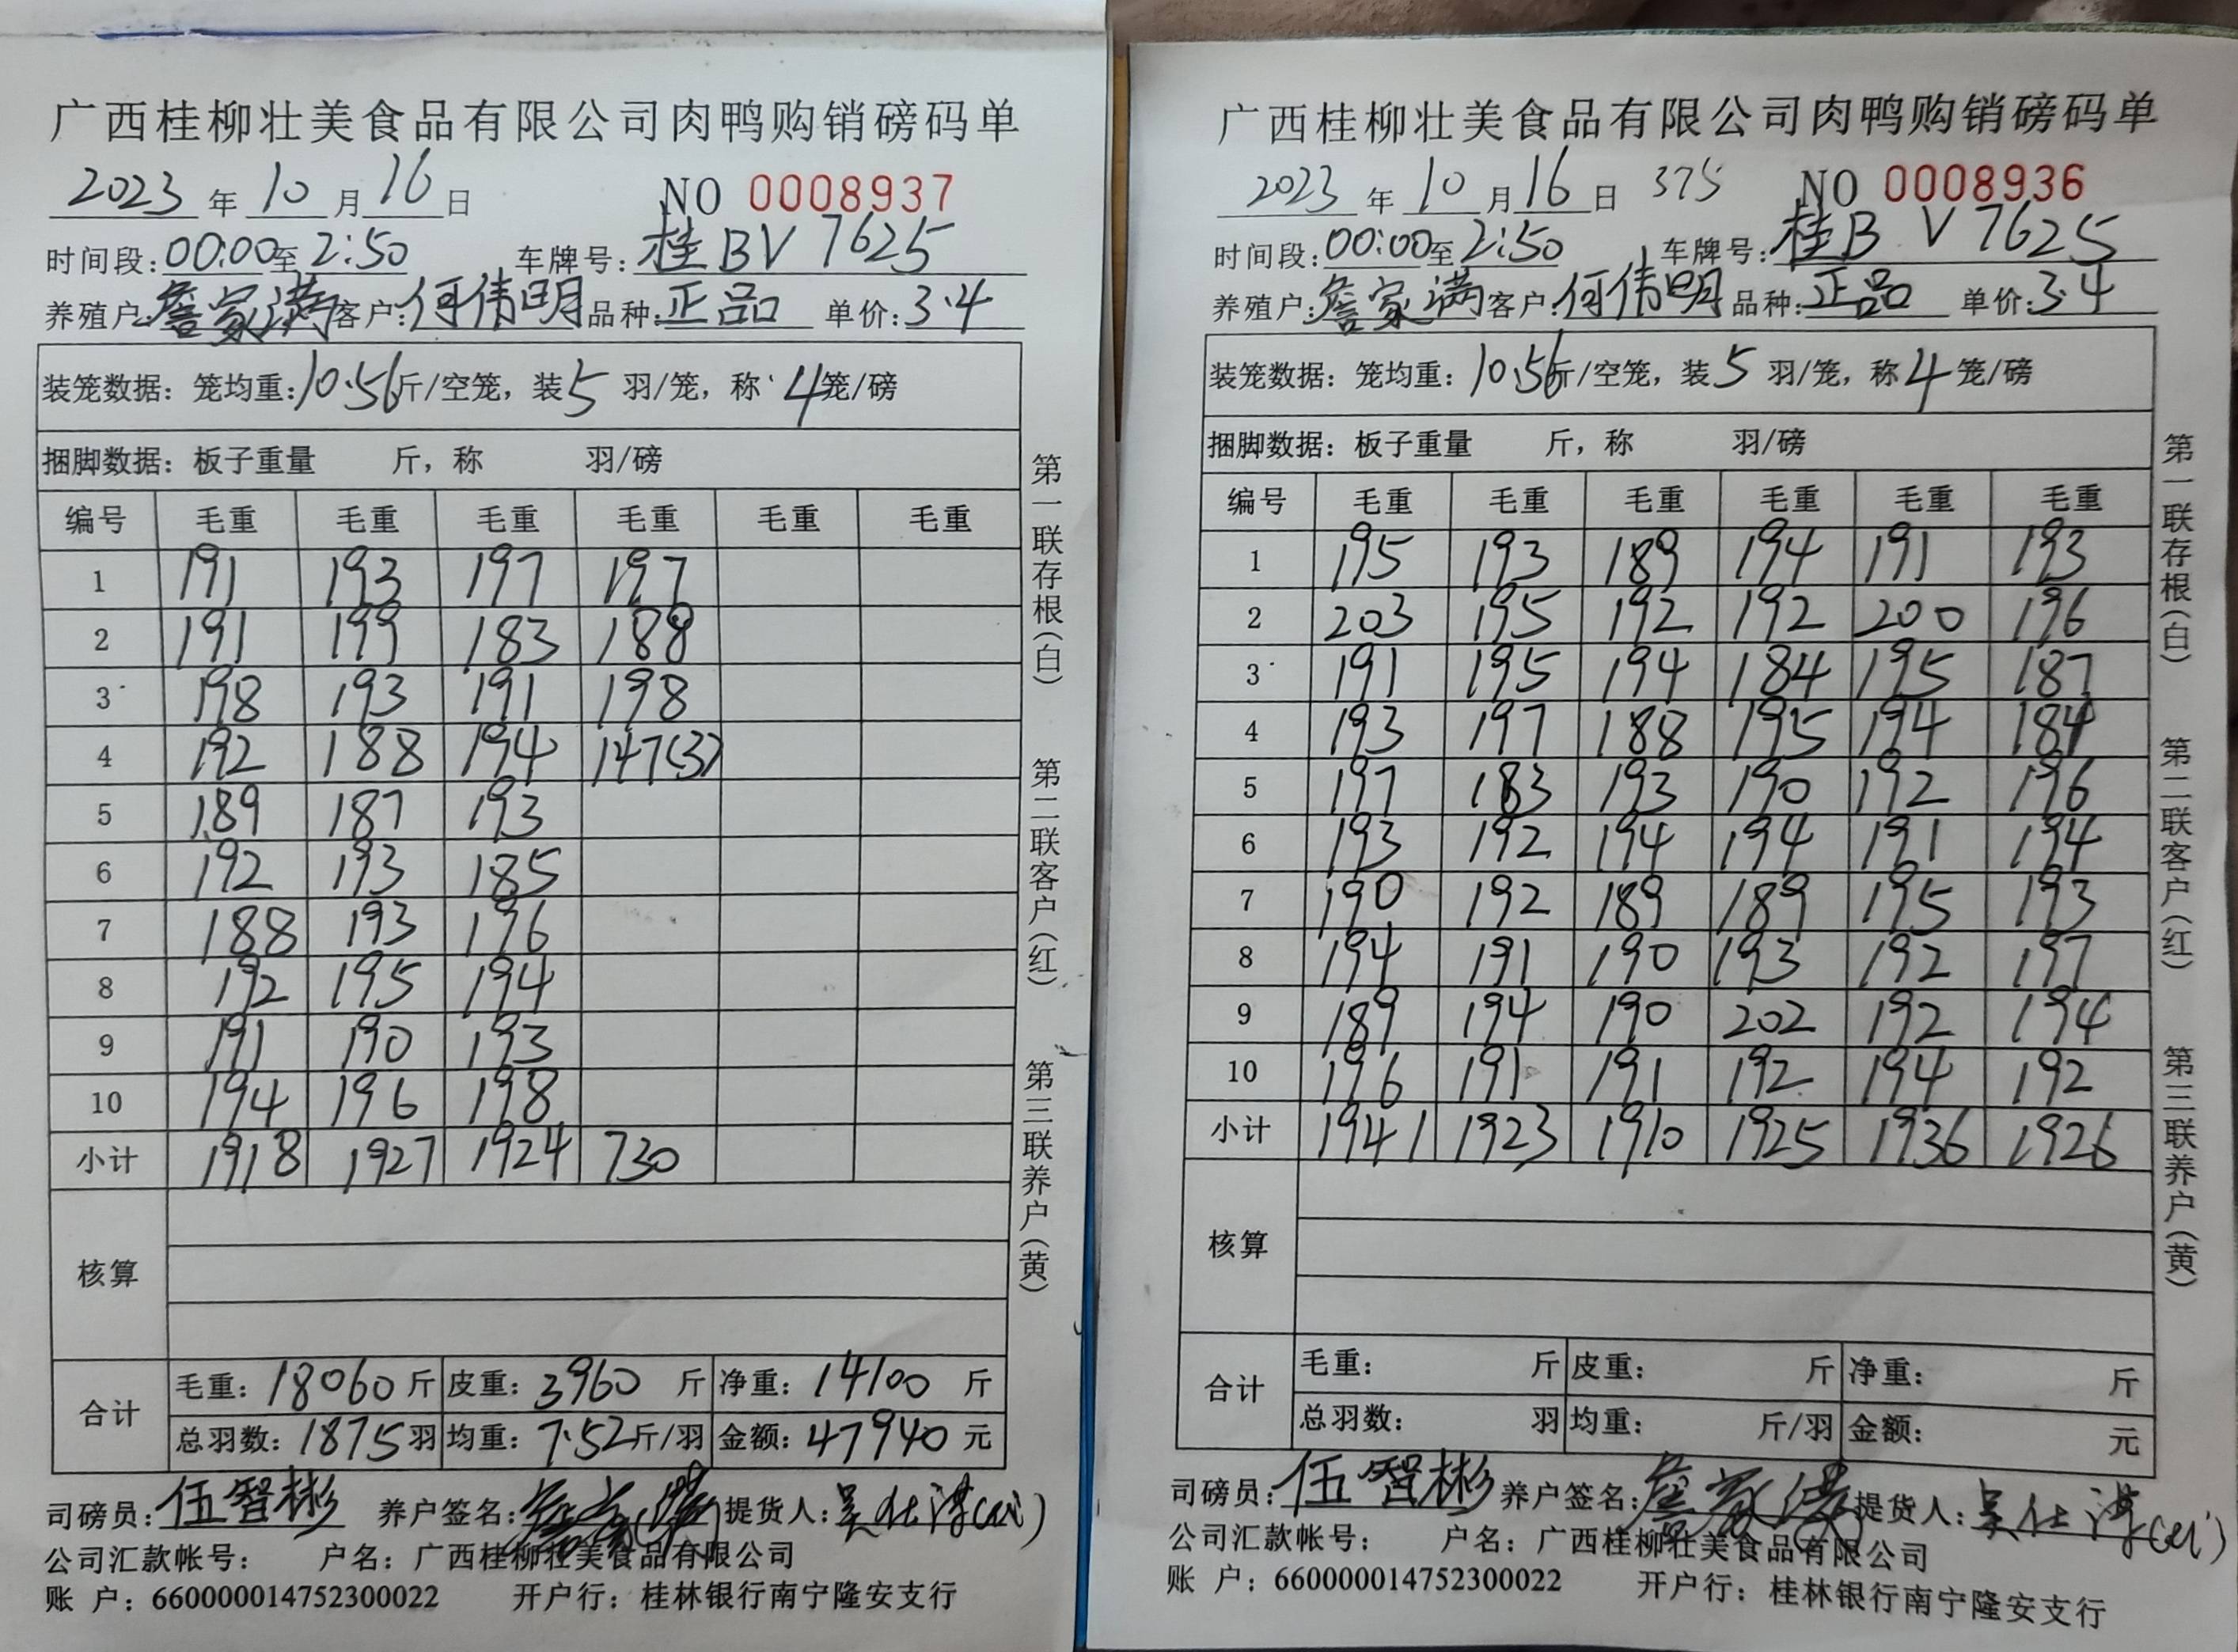 广西桂柳壮美食品有限公司肉鸭购销磅码单
2023 年 10 月 16 日 NO 0008937
时间段:00:00至2:50 车牌号:桂BV7625
养殖户:詹家满 客户:何伟明 品种:正品 单价:3.4
装笼数据:笼均重:10.56斤/空笼,装5羽/笼,称4笼/磅
捆脚数据:板子重量 斤,称 羽/磅
编号 毛重 毛重 毛重 毛重 毛重 毛重
1 191 193 197 197
2 191 199 183 188
3 198 193 191 198
4 192 188 194 147(3)
5 189 187 193
6 192 193 185
7 188 193 196
8 192 195 194
9 191 190 193
10 194 196 198
小计 1918 1927 1924 730
核算
合计 毛重:18060斤 皮重:3960斤 净重:14100斤
总羽数:1875羽 均重:7.52斤/羽 金额:47940元
司磅员:伍智彬 养户签名:詹家满 提货人:吴仕
公司汇款帐号: 户名:广西桂柳壮美食品有限公司
账 户:660000014752300022 开户行:桂林银行南宁隆安支行
第一联存根(白) 第二联客户(红) 第三联养户(黄)
广西桂柳壮美食品有限公司肉鸭购销磅码单
2023 年 10 月 16 日 375 NO 0008936
时间段:00:00至2:50 车牌号:桂BV7625
养殖户:詹家满 客户:何伟明 品种:正品 单价:3.4
装笼数据:笼均重:10.56斤/空笼,装5羽/笼,称4笼/磅
捆脚数据:板子重量 斤,称 羽/磅
编号 毛重 毛重 毛重 毛重 毛重 毛重
1 195 193 189 194 191 193
2 203 195 192 192 200 196
3 191 195 194 184 195 187
4 193 197 188 195 194 184
5 197 183 193 190 192 196
6 193 192 194 194 191 194
7 190 192 189 189 195 193
8 194 191 190 193 192 197
9 189 194 190 202 192 194
10 196 191 191 192 194 192
小计 1941 1923 1910 1925 1936 1926
核算
合计 毛重: 斤 皮重: 斤 净重: 斤
总羽数: 羽 均重: 斤/羽 金额: 元
司磅员:伍智彬 养户签名:詹家满 提货人:吴仕
公司汇款帐号: 户名:广西桂柳壮美食品有限公司
账 户:660000014752300022 开户行:桂林银行南宁隆安支行
第一联存根(白) 第二联客户(红) 第三联养户(黄)